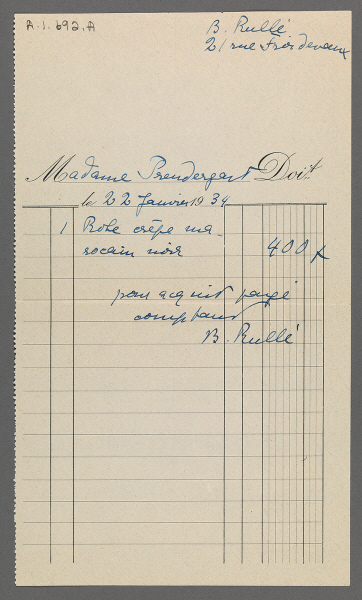 A.1.692.A
B. Rullé
21 rue Froidevaux
Madame Prendergast Doit
le 22 Janvier 1934
1 Robe crêpe ma_
rocain noir 400 f
pour acquit payé
comptant
B. Rullé